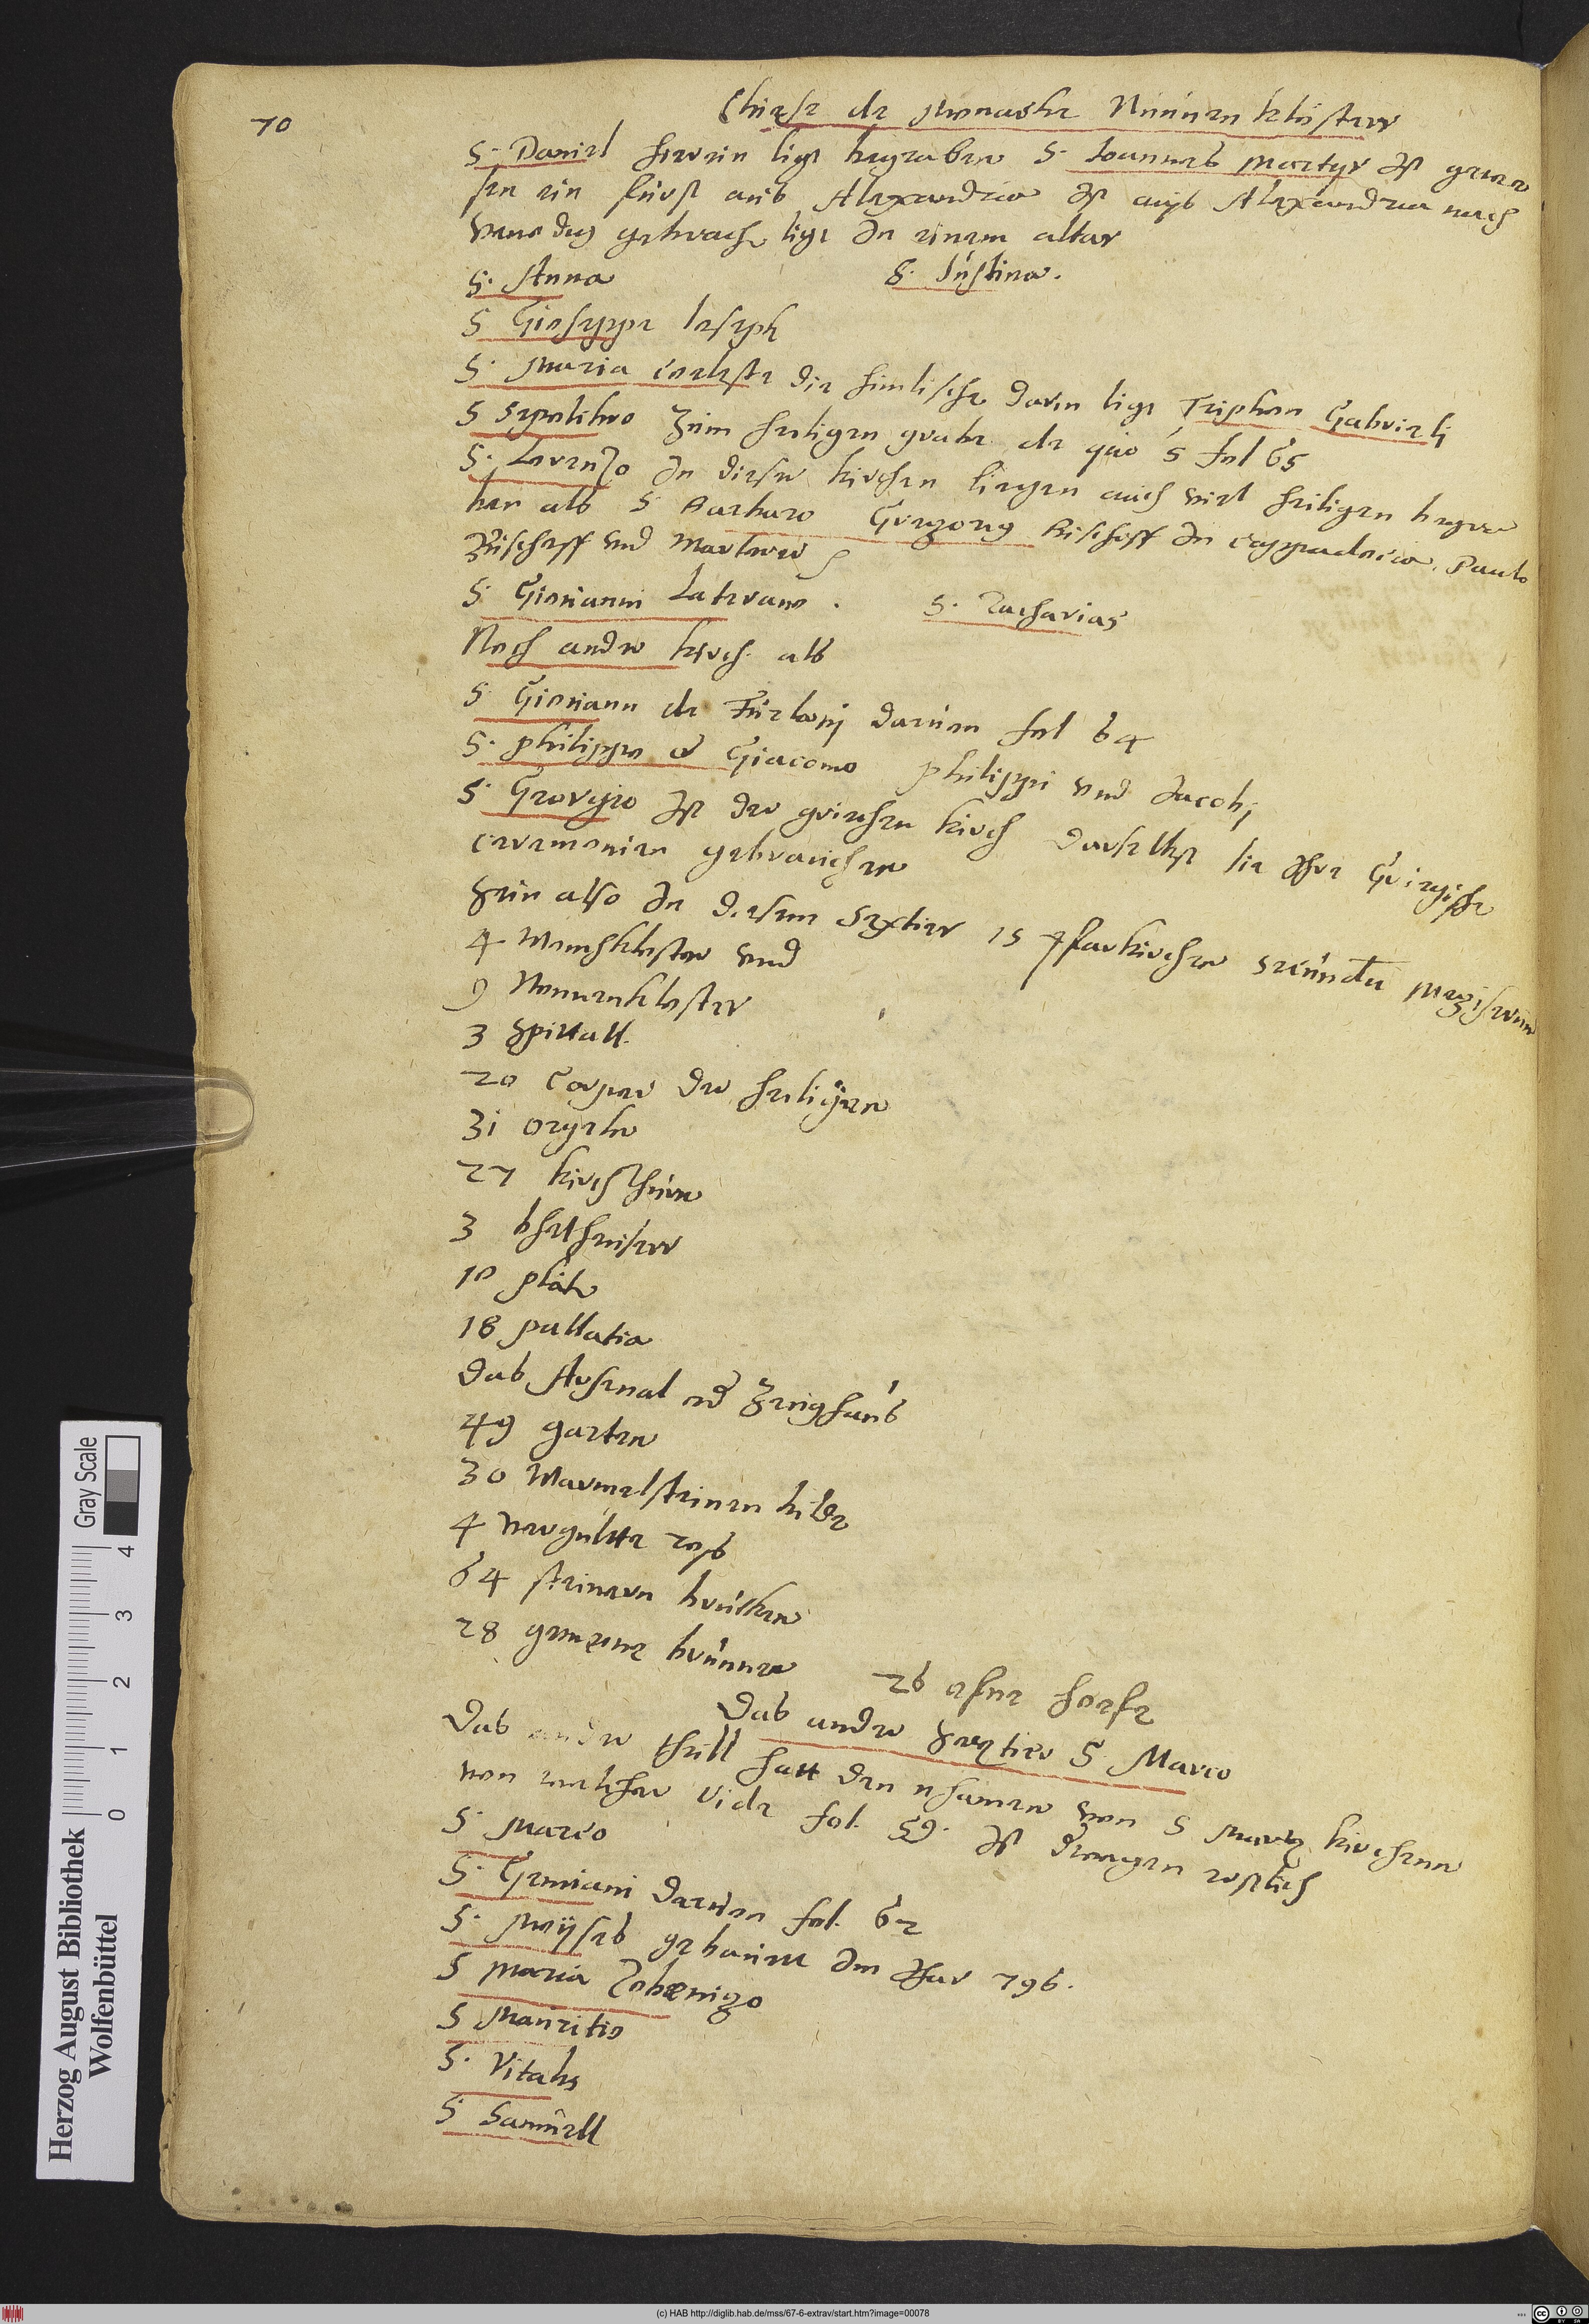 70
Chiese de Monache Nünnen klöster
S. Daniel herein ligt begraben S. Ioannes Martyr Ist gewe
sen ein fürst aus Alexandria Ist auß Alexandria nach
Venedig gebracht ligt In einem altar
S. Anna S. Iustina.
S Gioseppe Ioseph
S. Maria coeleste die himlische darin ligt Triphon Gabrieli
S Sepolchro Zum heiligen grabe de quo s fol 65
S. Lorenzo In dieser kirchen liegen auch viel heiligen begra
ben als S Barbaro Gregorij Bischoff In cappadocia. Paulo
Bischoff vnd Martirer
S. Giovanni Laterano. S. Zacharias
Noch andre kirch. als
S Giovann de Furlanj daruon fol 64
S. Philippo et Giacomo Philippi vnd Jacobj
S. Georgio Ist der griechen kirch daselbst sie Ihre Griegische
ceremonien gebrauchen
Sein also In diesem Sextier 15 Pfarkirchen
4 Monchkloster vnd
9 Nonnenkloster
3 Spittall.
20 Corper der heiligen
31 orgeln
27 kirchthürn
3
10 plätz
18 pallatia
das Arsenal od Zeughaus
49 garten
30 Marmelsteinen bilde
4 vergultte roß
64 steinern brücken
28 gemeine brunnen 26 ofne hoefe
Das ander Sextier S. Marco
Das ander theill hatt den nhamen von S Marx kirchenn
von welcher vide fol. 59. Ist
S. Marco
S. Geminiani daruon fol. 62
S. Moyses gebauwt Im Jhar 796.
S Maria Zobenigo
S Mauritio
S. Vitalis
S Samuell
Herzog August Bibliothek
Wolfenbüttel
Gray Scale
0 1 2 3 4
(c) HAB http://diglib.hab.de/mss/67-6-extrav/start.htm?image=00078